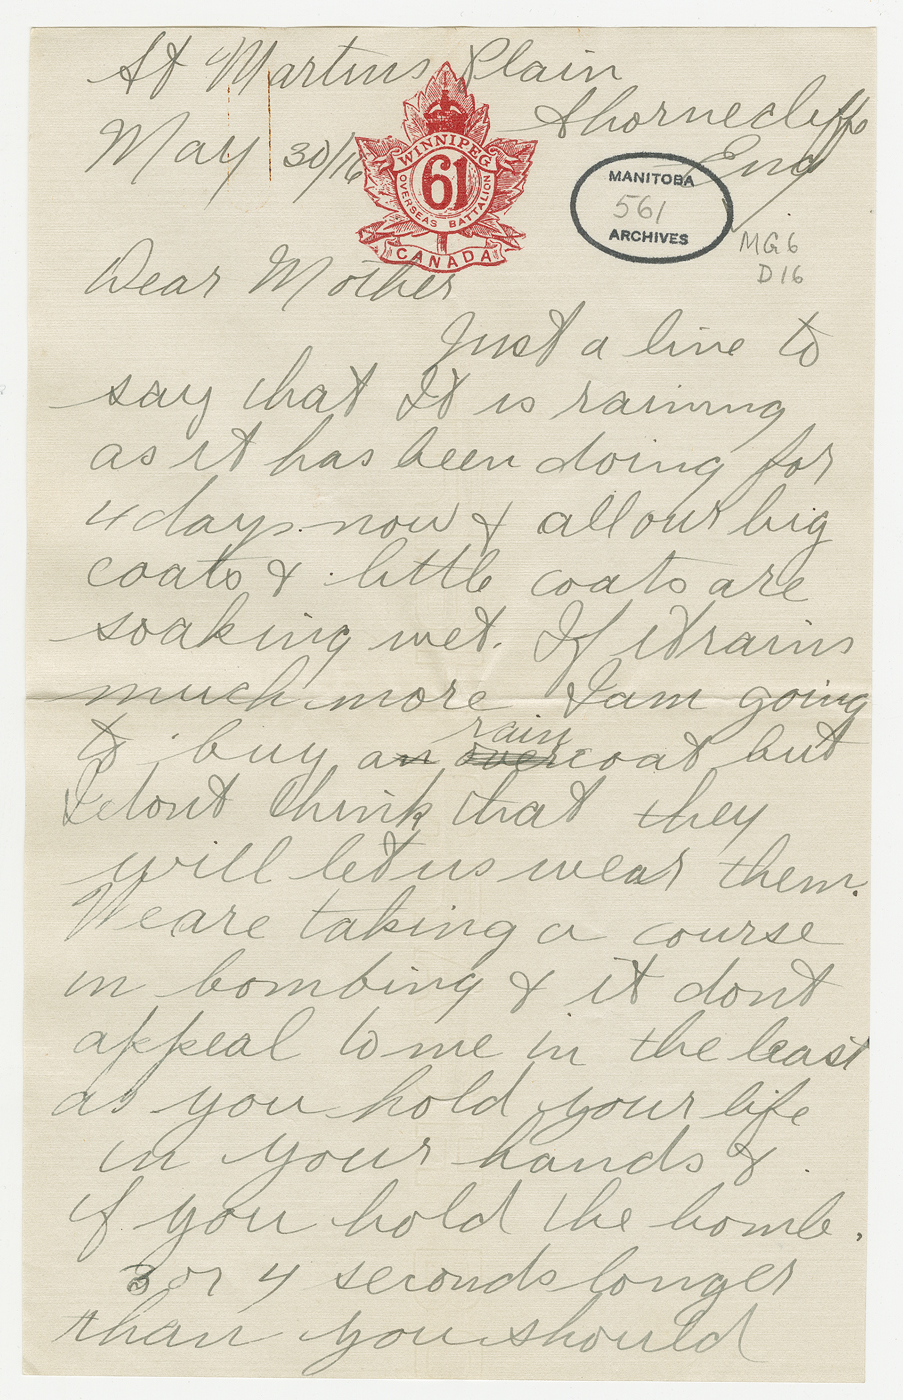 St Martins Plain
Shornecliffe
May 30/16
Eng
WINNIPEG
61
OVERSEAS BATTALION
CANADA
MANITOBA
561
ARCHIVES
MG6
D16
Dear Mother
Just a line to
say that It is raining
as it has been doing for
4 days now & all our big
coats & little coats are
soaking wet. If it rains
much more I am going
rain
to buy an overcoat but
I dont think that they
will let us wear them.
We are taking a course
in bombing & it dont
appeal to me in the least
as you hold your life
in your hands &
if you hold the bomb.
3 or 4 seconds longer
than you should